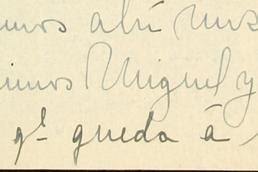 mos ahí mis
imos Miguel y
q.l queda á